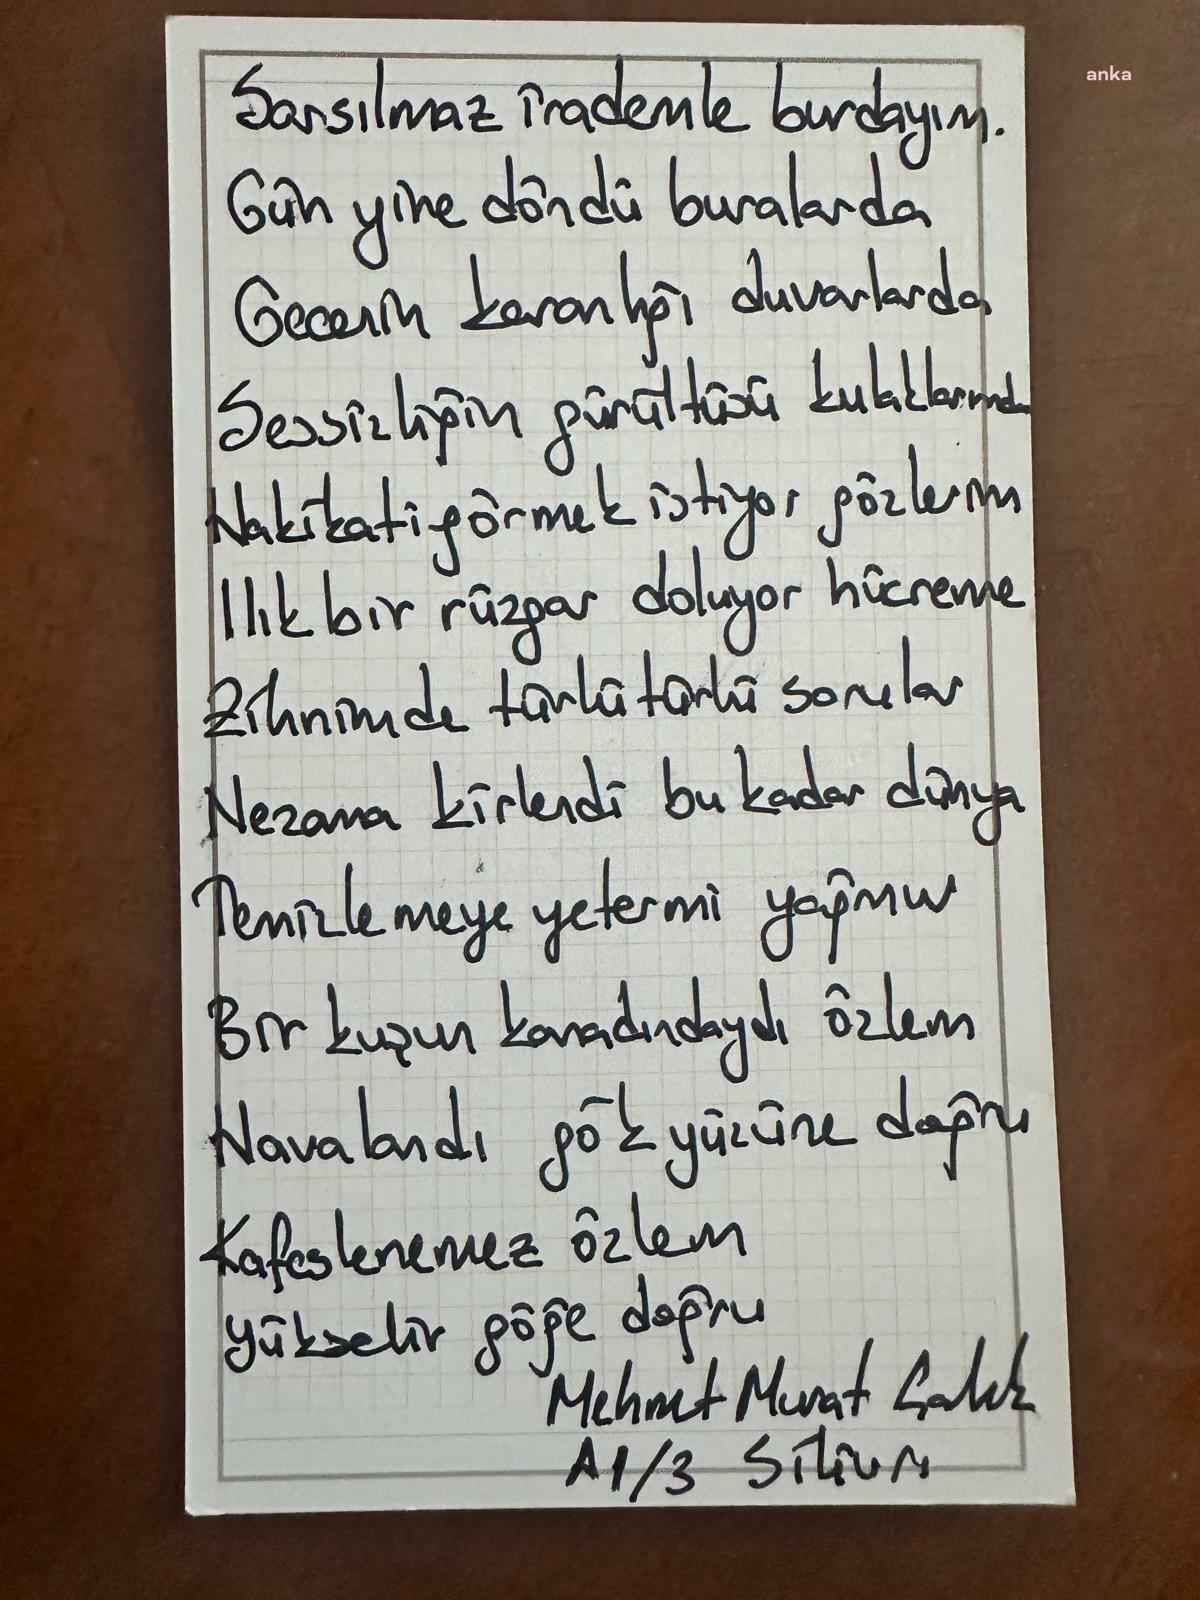 anka
Sarsılmaz irademle burdayım.
Gün yine döndü buralarda
Gecenin karanlığı duvarlarda
Sessizliğin gürültüsü kulaklarımda
Hakikati görmek istiyor gözlerim
Ilık bir rüzgar doluyor hücreme
Zihnimde türlü türlü sorular
Nezama kirlendi bu kadar dünya
Temizlemeye yetermi yağmur
Bir kuşun kanadındaydı özlem
Havalandı gök yüzüne doğru
Kafeslenemez özlem
yükselir göğe doğru
Mehmet Murat Çalık
A1/3 Silivri